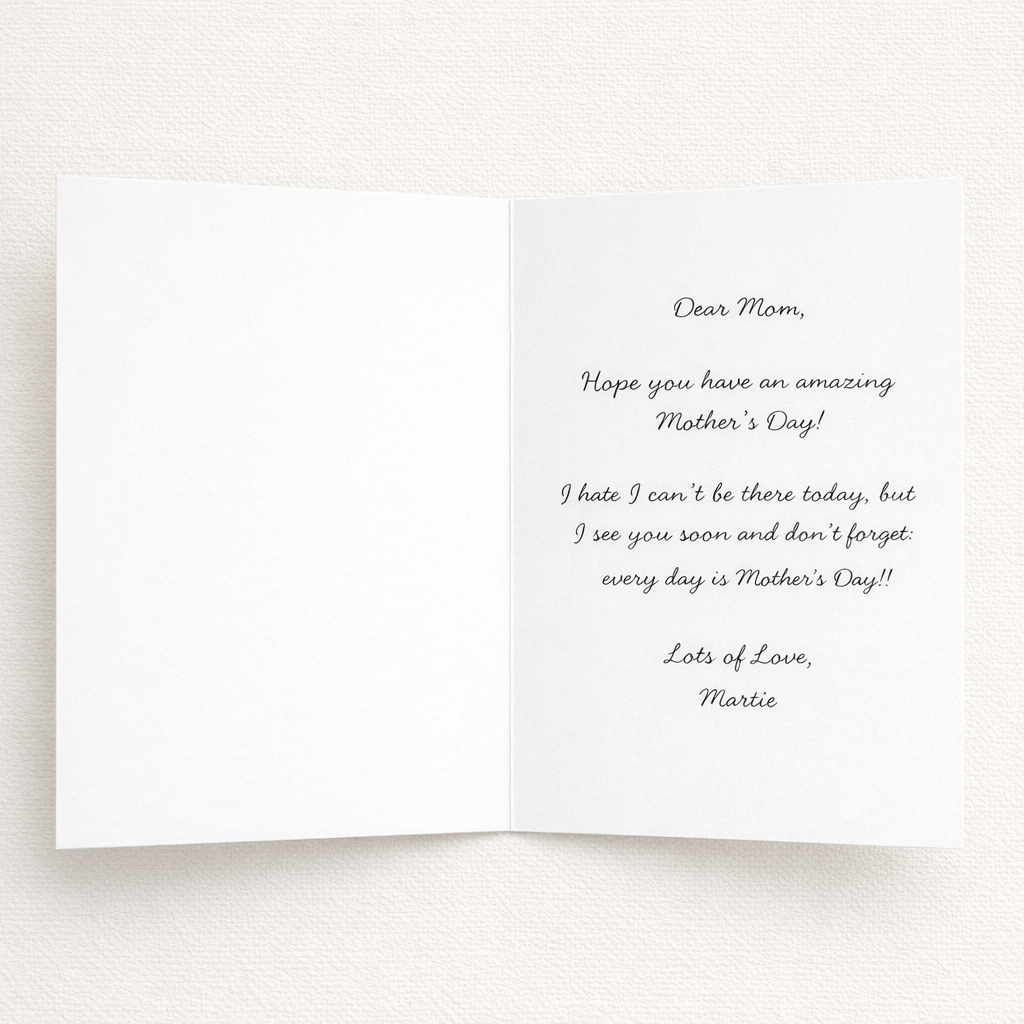 Dear Mom,
Hope you have an amazing
Mother's Day!
I hate I can't be there today, but
I see you soon and don't forget:
every day is Mother's Day!!
Lots of Love,
Martie